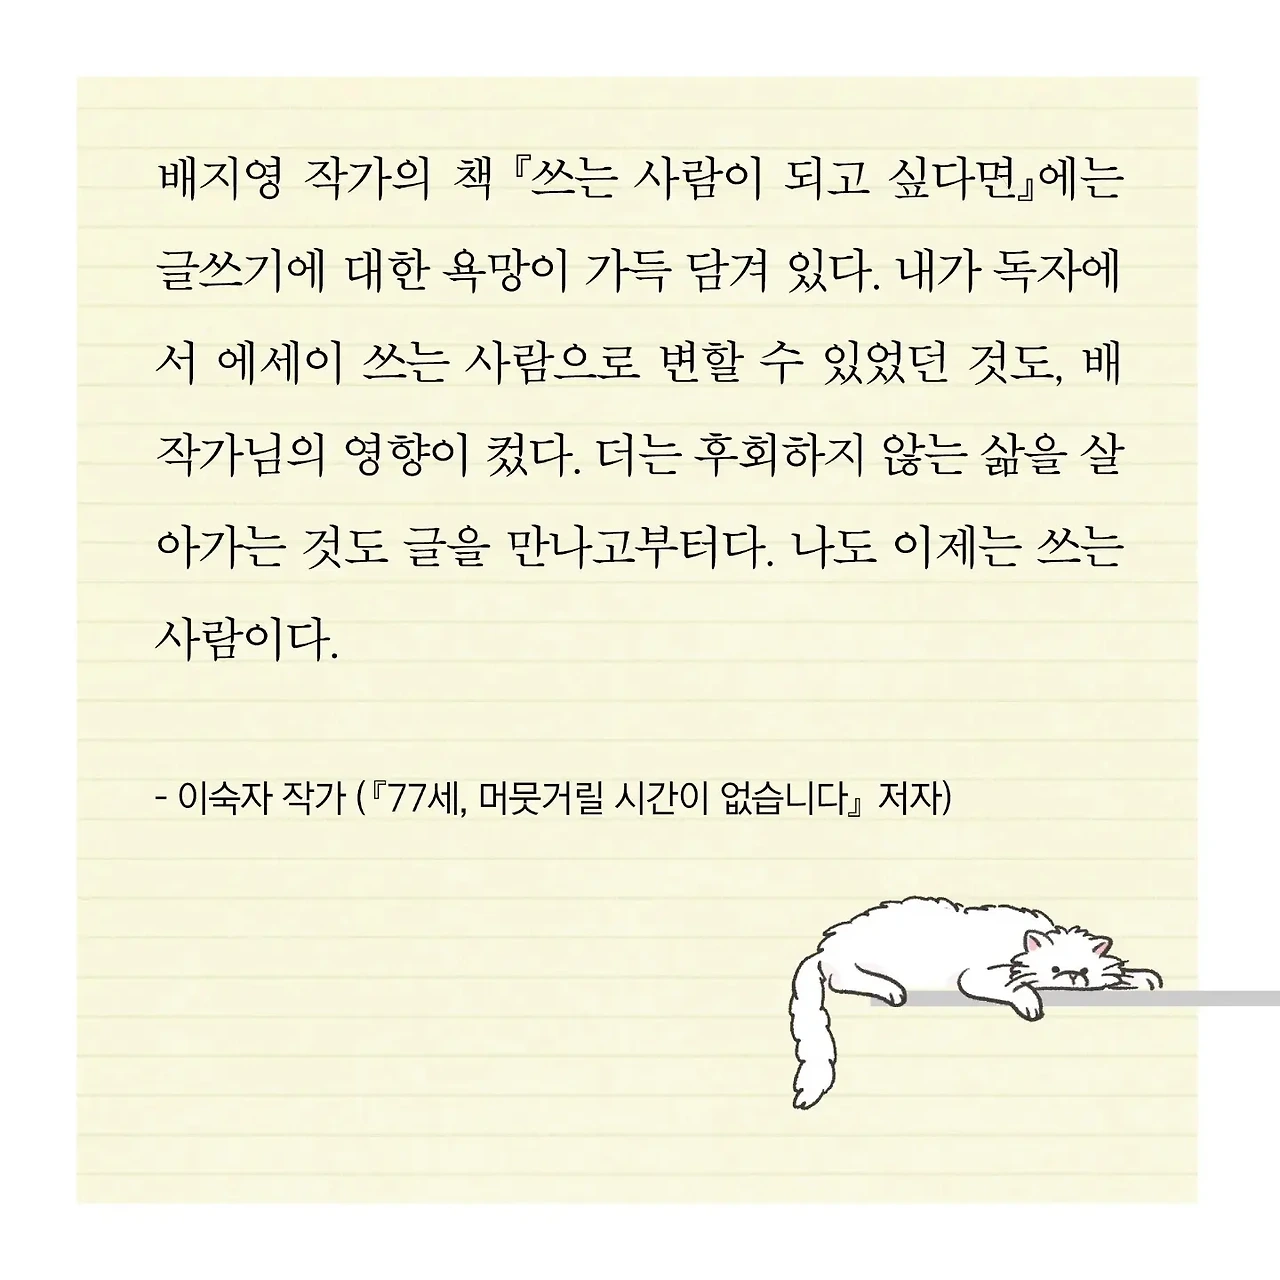 배지영 작가의 책 『쓰는 사람이 되고 싶다면』에는
글쓰기에 대한 욕망이 가득 담겨 있다. 내가 독자에
서 에세이 쓰는 사람으로 변할 수 있었던 것도, 배
작가님의 영향이 컸다. 더는 후회하지 않는 삶을 살
아가는 것도 글을 만나고부터다. 나도 이제는 쓰는
사람이다.
- 이숙자 작가 (『77세, 머뭇거릴 시간이 없습니다』 저자)